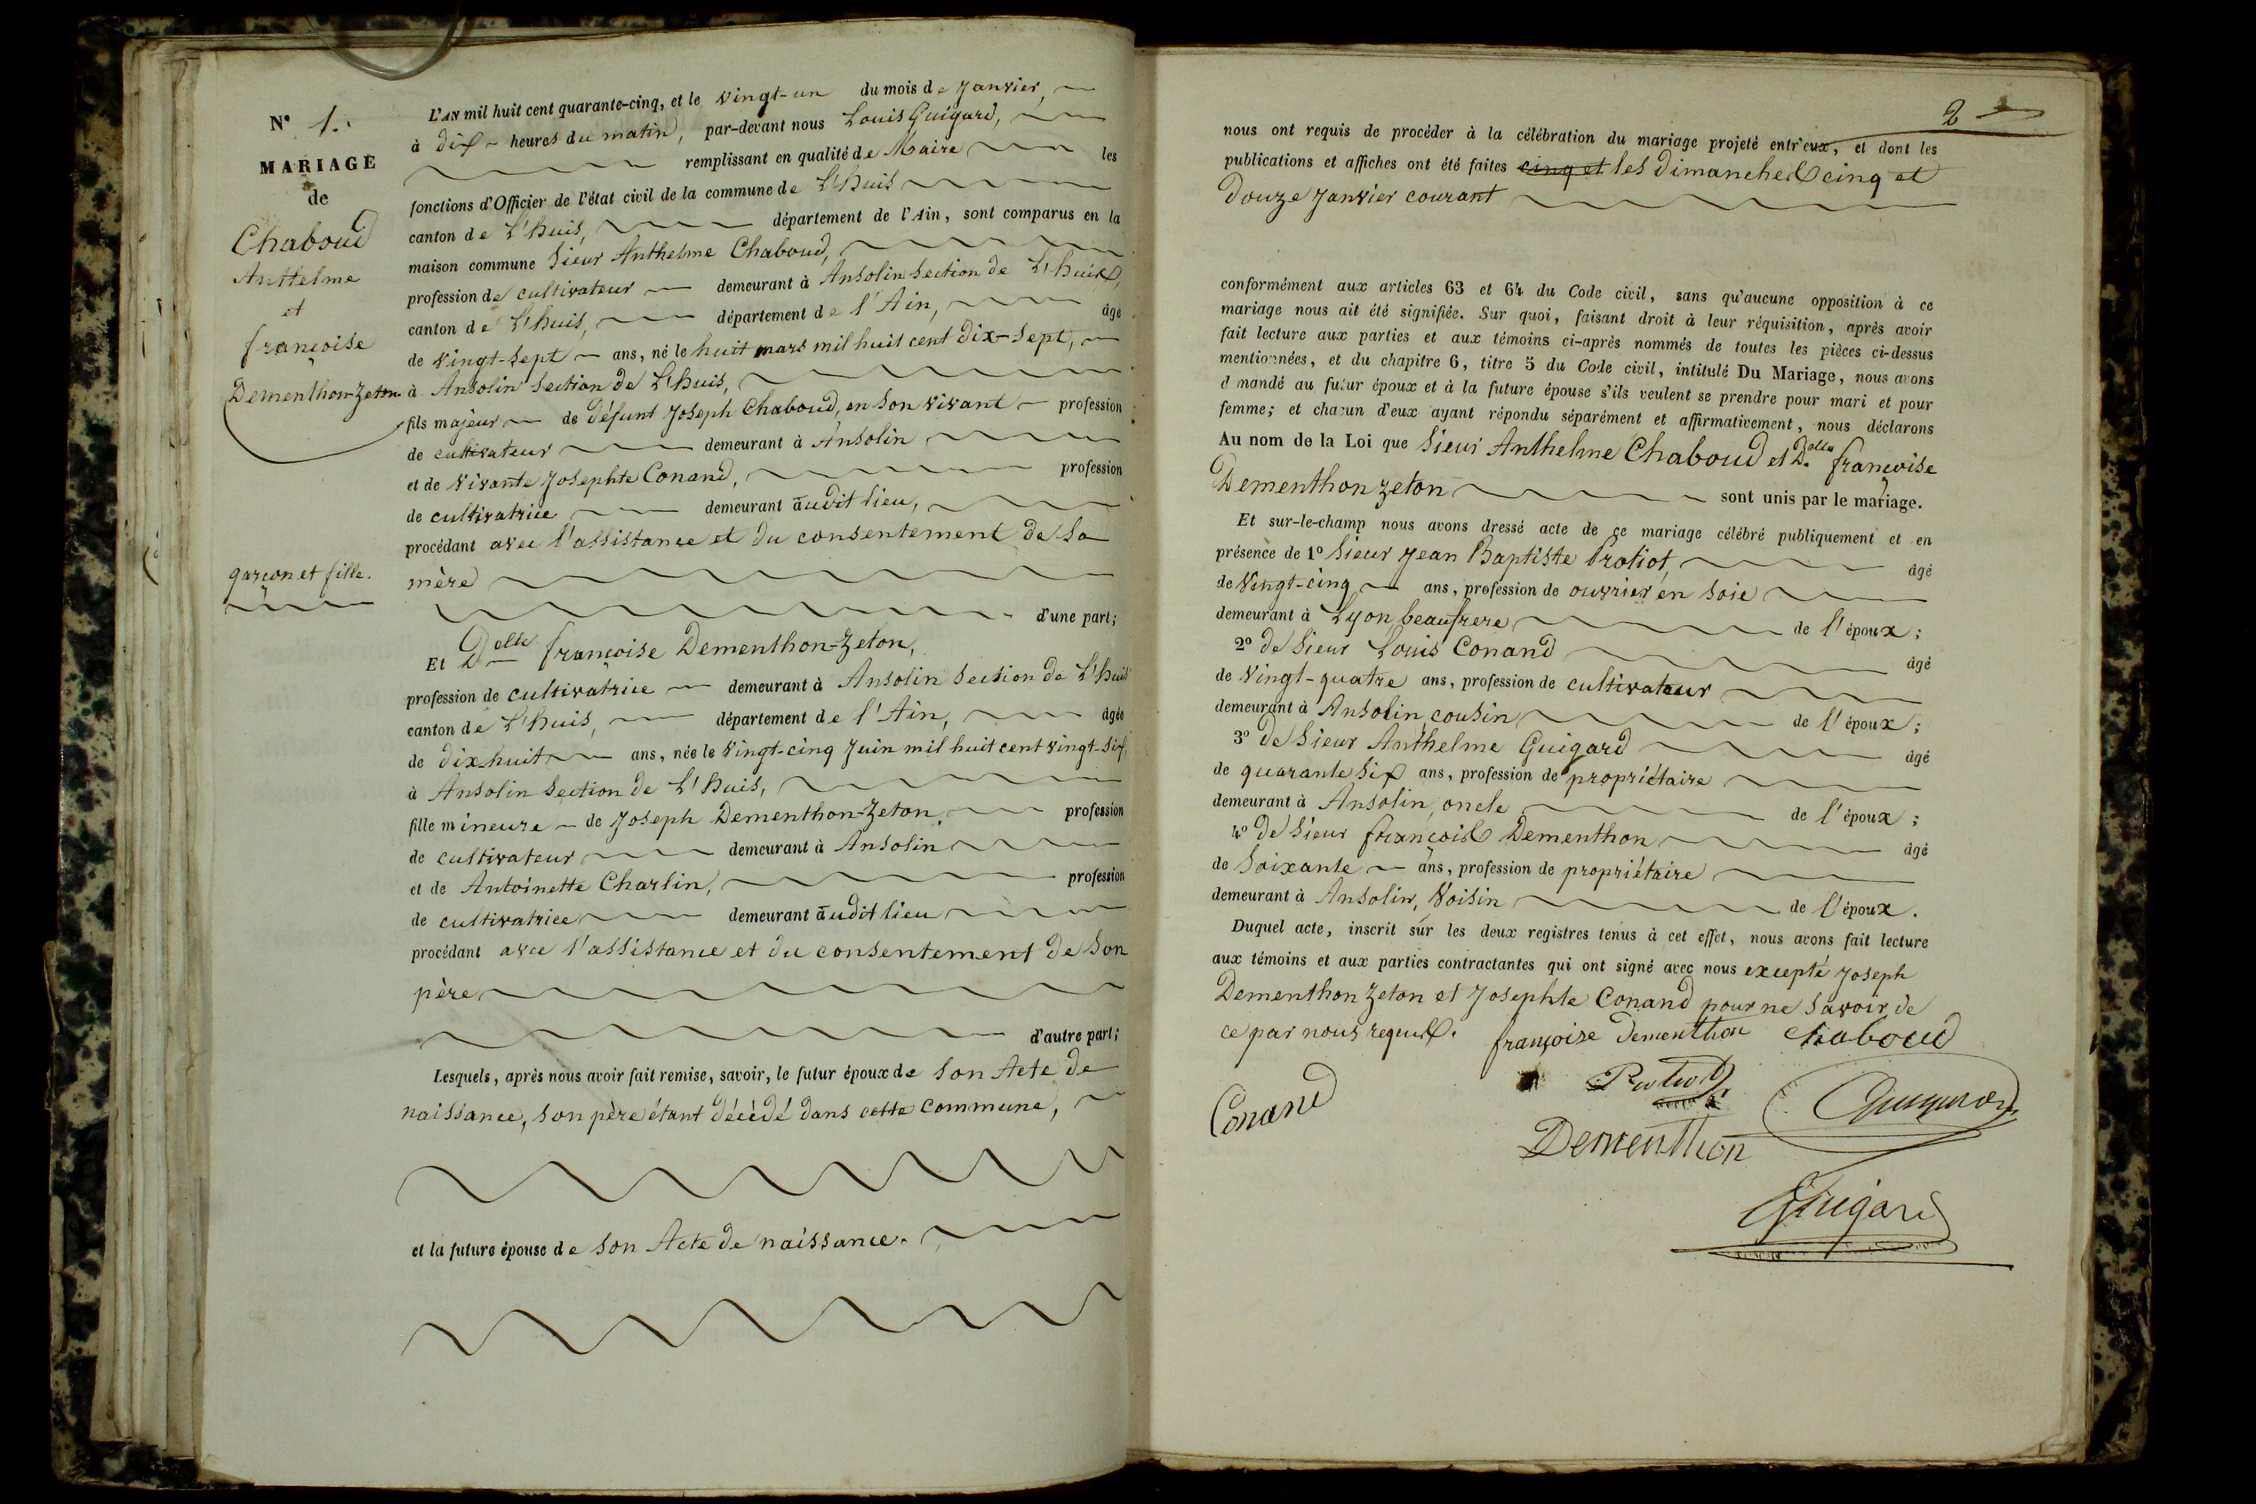 N° 1.
MARIAGE
de
Chaboud
Anthelme
et
françoise
Dementhon-Zeton
garçon et fille.
L'AN mil huit cent quarante-cinq, et le vingt-un du mois de Janvier,
à dix heures du matin, par-devant nous Louis Guigard,
remplissant en qualité de Maire les
fonctions d'Officier de l'état civil de la commune de L'huis
canton de L'huis, département de l'Ain, sont comparus en la
maison commune Sieur Anthelme Chaboud,
profession de cultivateur demeurant à Ansolin section de L'huis,
canton de L'huis, département de l'Ain, âgé
de vingt-sept ans, né le huit mars mil huit cent dix-sept,
à Ansolin section de L'huis,
fils majeur de défunt Joseph Chaboud, en son vivant profession
de cultivateur demeurant à Ansolin
et de vivante Josephte Conand, profession
de cultivatrice demeurant audit lieu,
procédant avec l'assistance et du consentement de sa
mère
d'une part;
Et Delle françoise Dementhon-Zeton,
profession de cultivatrice demeurant à Ansolin section de L'huis
canton de L'huis, département de l'Ain, âgée
de dix-huit ans, née le vingt-cinq Juin mil huit cent vingt-six,
à Ansolin section de L'huis,
fille mineure de Joseph Dementhon-Zeton, profession
de cultivateur demeurant à Ansolin
et de Antoinette Charlin, profession
de cultivatrice demeurant audit lieu
procédant avec l'assistance et du consentement de son
père
d'autre part;
Lesquels, après nous avoir fait remise, savoir, le futur époux de son Acte de
naissance, son père étant décédé dans cette commune,
et la future épouse de son Acte de naissance.
2
nous ont requis de procéder à la célébration du mariage projeté entr'eux, et dont les
publications et affiches ont été faites cinq et les dimanches cinq et
douze Janvier courant
conformément aux articles 63 et 64 du Code civil, sans qu'aucune opposition à ce
mariage nous ait été signifiée. Sur quoi, faisant droit à leur réquisition, après avoir
fait lecture aux parties et aux témoins ci-après nommés de toutes les pièces ci-dessus
mentionnées, et du chapitre 6, titre 5 du Code civil, intitulé Du Mariage, nous avons
d mandé au futur époux et à la future épouse s'ils veulent se prendre pour mari et pour
femme; et chacun d'eux ayant répondu séparément et affirmativement, nous déclarons
Au nom de la Loi que Sieur Anthelme Chaboud et Delle françoise
Dementhon Zeton sont unis par le mariage.
Et sur-le-champ nous avons dressé acte de ce mariage célébré publiquement et en
présence de 1° Sieur Jean Baptiste Protiot, âgé
de vingt-cinq ans, profession de ouvrier en soie
demeurant à Lyon beaufrere de l'époux;
2° de Sieur Louis Conand âgé
de vingt-quatre ans, profession de cultivateur
demeurant à Ansolin, cousin de l'époux;
3° de Sieur Anthelme Guigard âgé
de quarante six ans, profession de propriétaire
demeurant à Ansolin, oncle de l'époux;
4° de Sieur françois Dementhon âgé
de soixante ans, profession de propriétaire
demeurant à Ansolin, Voisin de l'époux.
Duquel acte, inscrit sur les deux registres tenus à cet effet, nous avons fait lecture
aux témoins et aux parties contractantes qui ont signé avec nous excepté Joseph
Dementhon Zeton et Josephte Conand pour ne savoir de
ce par nous requis. françoise Dementhon Chaboud
Conand Protiot
Dementhon
Guigard